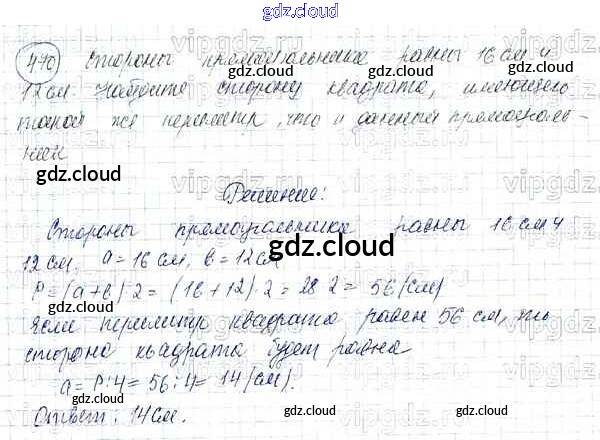 gdz.cloud
470 Стороны прямоугольника равны 16 см и
12 см. Найдите сторону квадрата, имеющего
такой же периметр, что и данный прямоуголь-
ник
gdz.cloud gdz.cloud
gdz.cloud
Решение:
Стороны прямоугольника равны 16 см и
12 см. a = 16 см, b = 12 см
gdz.cloud
P = (a+b)·2 = (16+12)·2 = 28·2 = 56 (см)
Если периметр квадрата равен 56 см, то
сторона квадрата будет равна
a = P:4 = 56:4 = 14 (см).
gdz.cloud gdz.cloud
Ответ: 14 см.
gdz.cloud